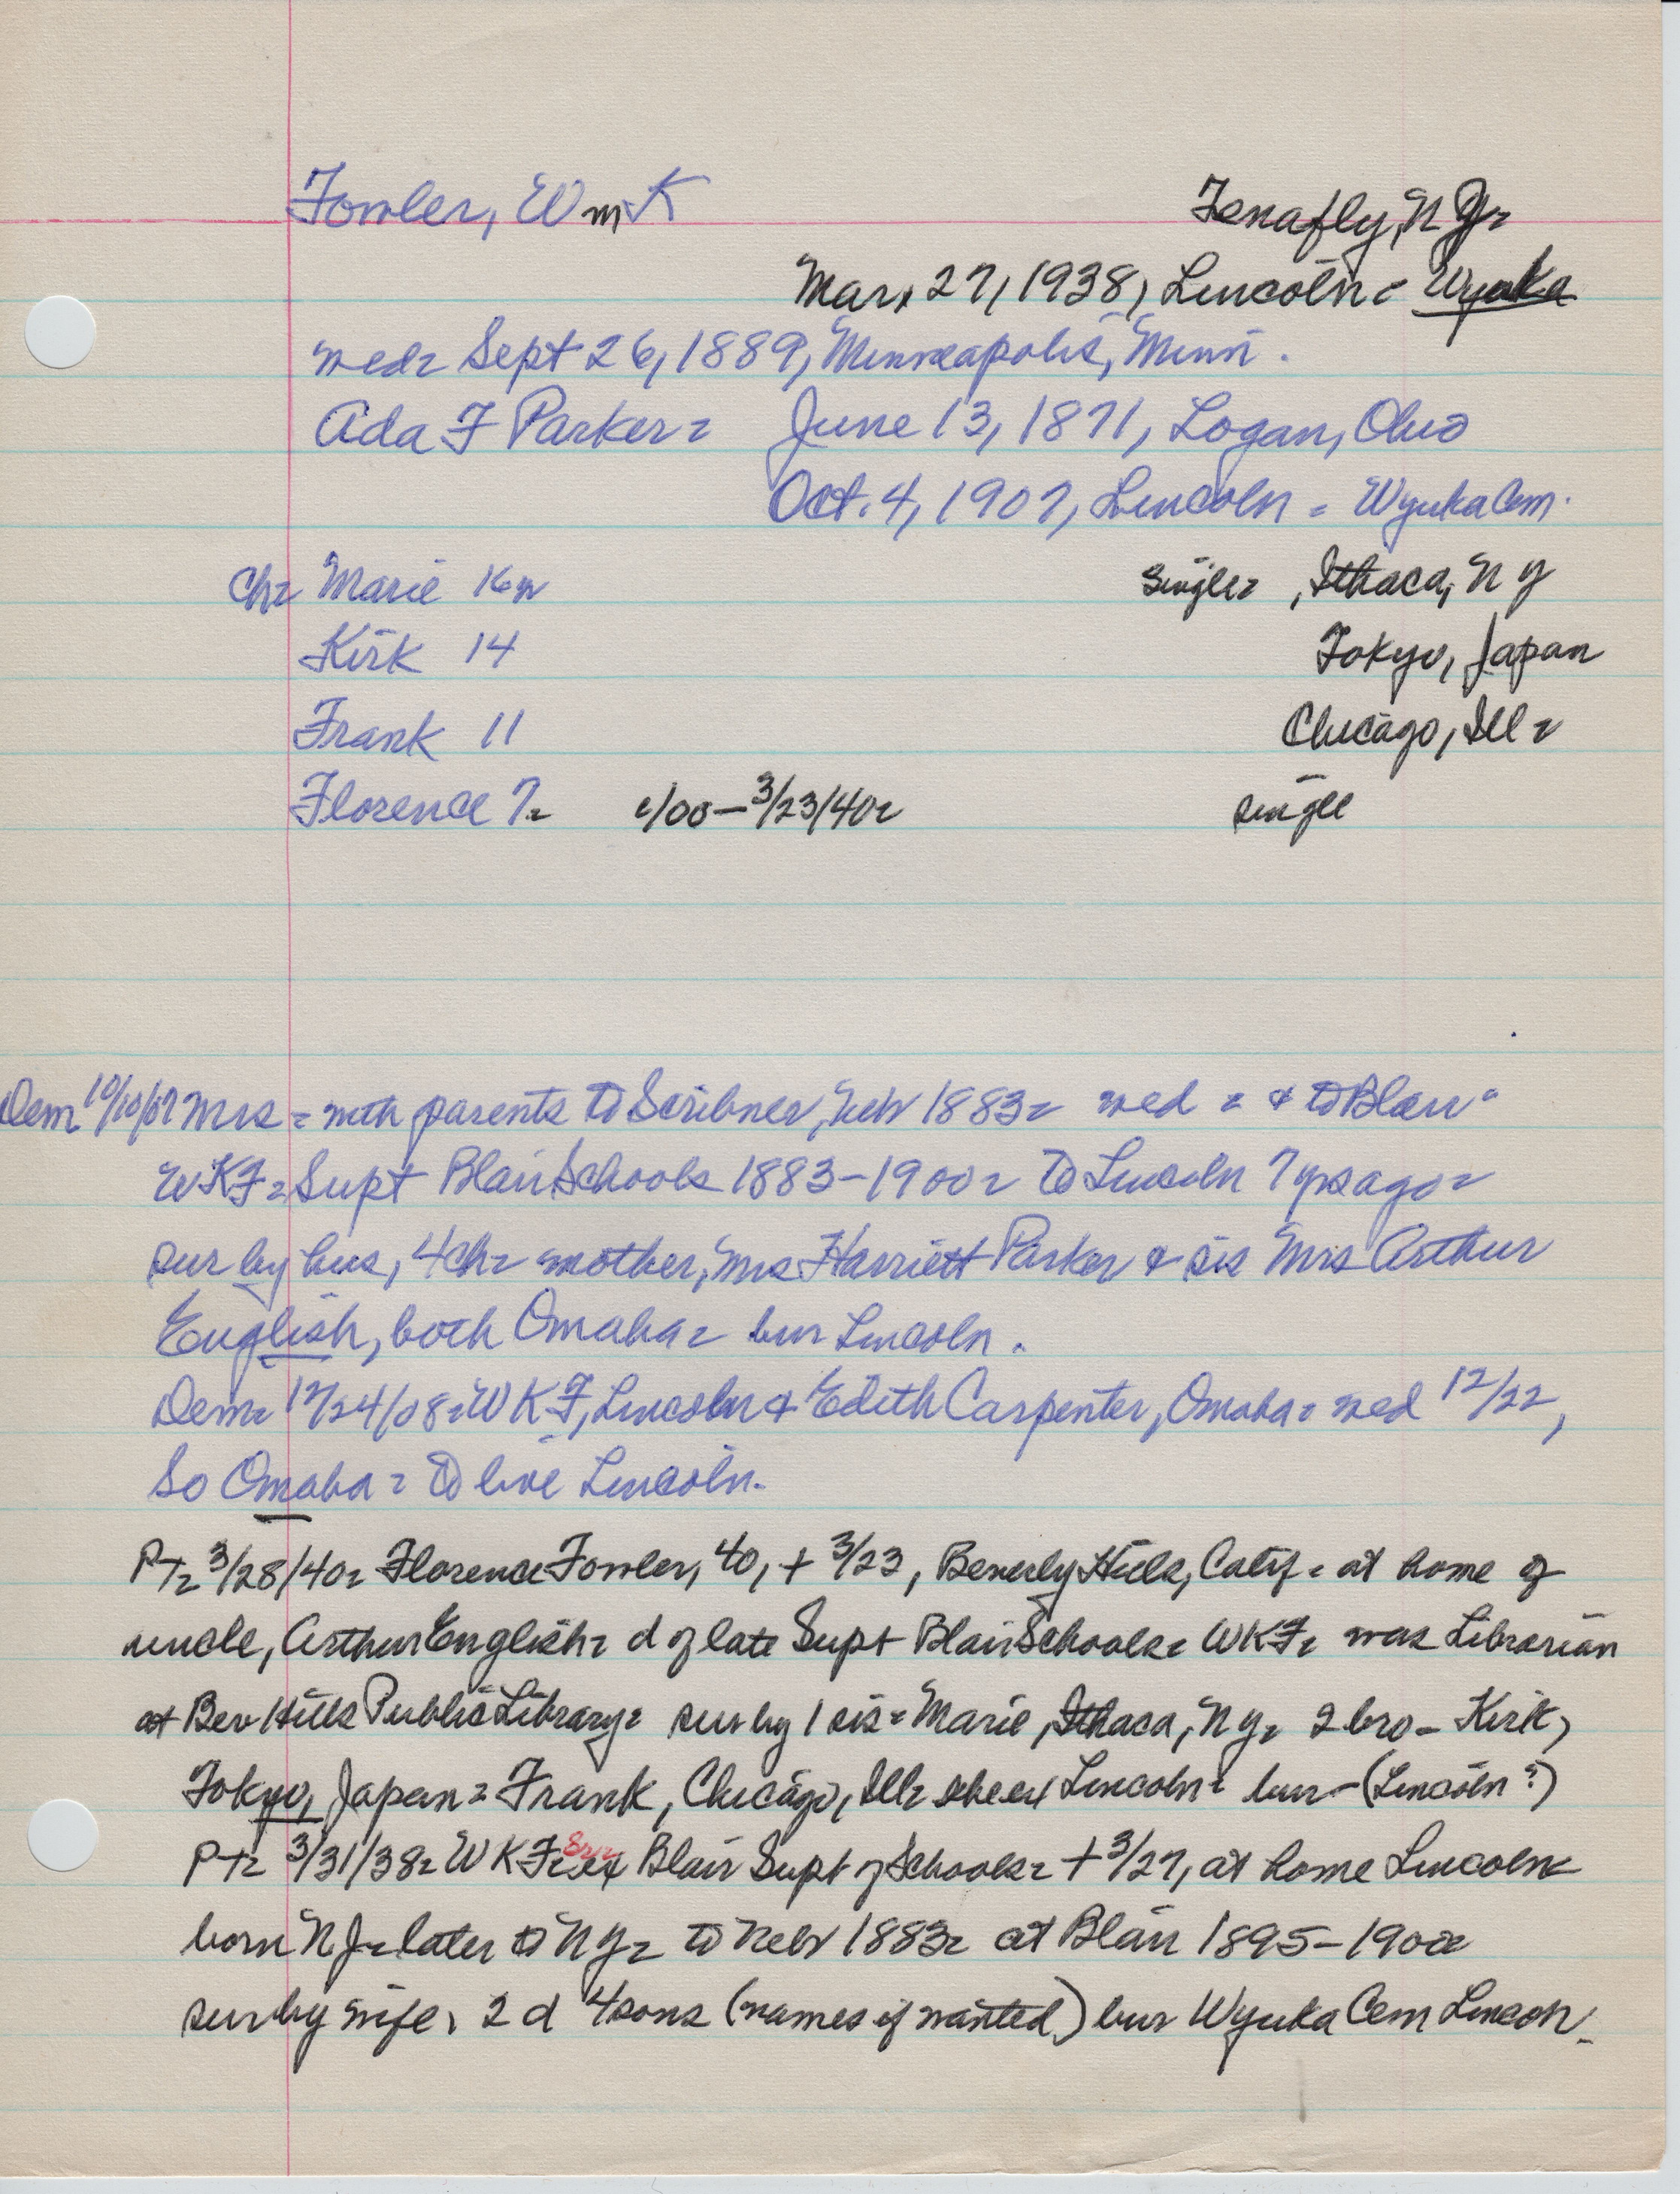 Fowler, Wm K Tenafly, N J=
Mar. 27, 1938, Lincoln = Wyuka
wed= Sept 26, 1889, Minneapolis, Minn.
Ada F Parker= June 13, 1871, Logan, Ohio
Oct. 4, 1907, Lincoln = Wyuka Cem.
Ch= Marie 16 single= , Ithaca, N Y
Kirk 14 Tokyo, Japan
Frank 11 Chicago, Ill=
Florence 7= c/00-3/23/40= single
Dem 10/10/07 Mrs = with parents to Scribner, Neb 1883= wed = & to Blair=
WKF= Supt Blair Schools 1883-1900= to Lincoln 7 yrs ago=
sur by hus, 4 ch= mother, Mrs Harriett Parker & sis Mrs Arthur
English, both Omaha= bur Lincoln.
Dem= 12/24/08= W K F, Lincoln & Edith Carpenter, Omaha= wed 12/22,
So Omaha= to live Lincoln.
PT= 3/28/40= Florence Fowler, 40, + 3/23, Beverly Hills, Calif= at home of
uncle, Arthur English= d of late Supt Blair Schools= WKF= was Librarian
at Bev Hills Public Library= sur by 1 sis= Marie, Ithaca, N Y= 2 bro- Kirk,
Tokyo, Japan= Frank, Chicago, Ill= Lincoln= bur-(Lincoln?)
PT= 3/31/38= W K F= ex Blair Supt of Schools= + 3/27, at home Lincoln=
born N J= later to N Y= to Neb 1883= at Blair 1895-1900=
sur by wife, 2 d 4 sons (names if wanted) bur Wyuka Cem Lincoln.